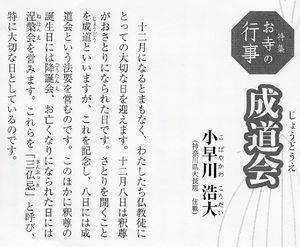 特集
お寺の
行事
成道会
じょうどうえ
小早川 浩大
こばやかわ こうだい
十二月になるとまもなく、わたしたち仏教徒に
とっての大切な日を迎えます。十二月八日は釈尊
がおさとりになられた日です。さとりを開くこと
を成道といいますが、これを記念し、八日には成
道会という法要を営むものです。このほかに釈尊の
誕生日には降誕会、お亡くなりになられた日には
涅槃会を営みます。これらを「三仏忌」と呼び、
特に大切な日としているのです。